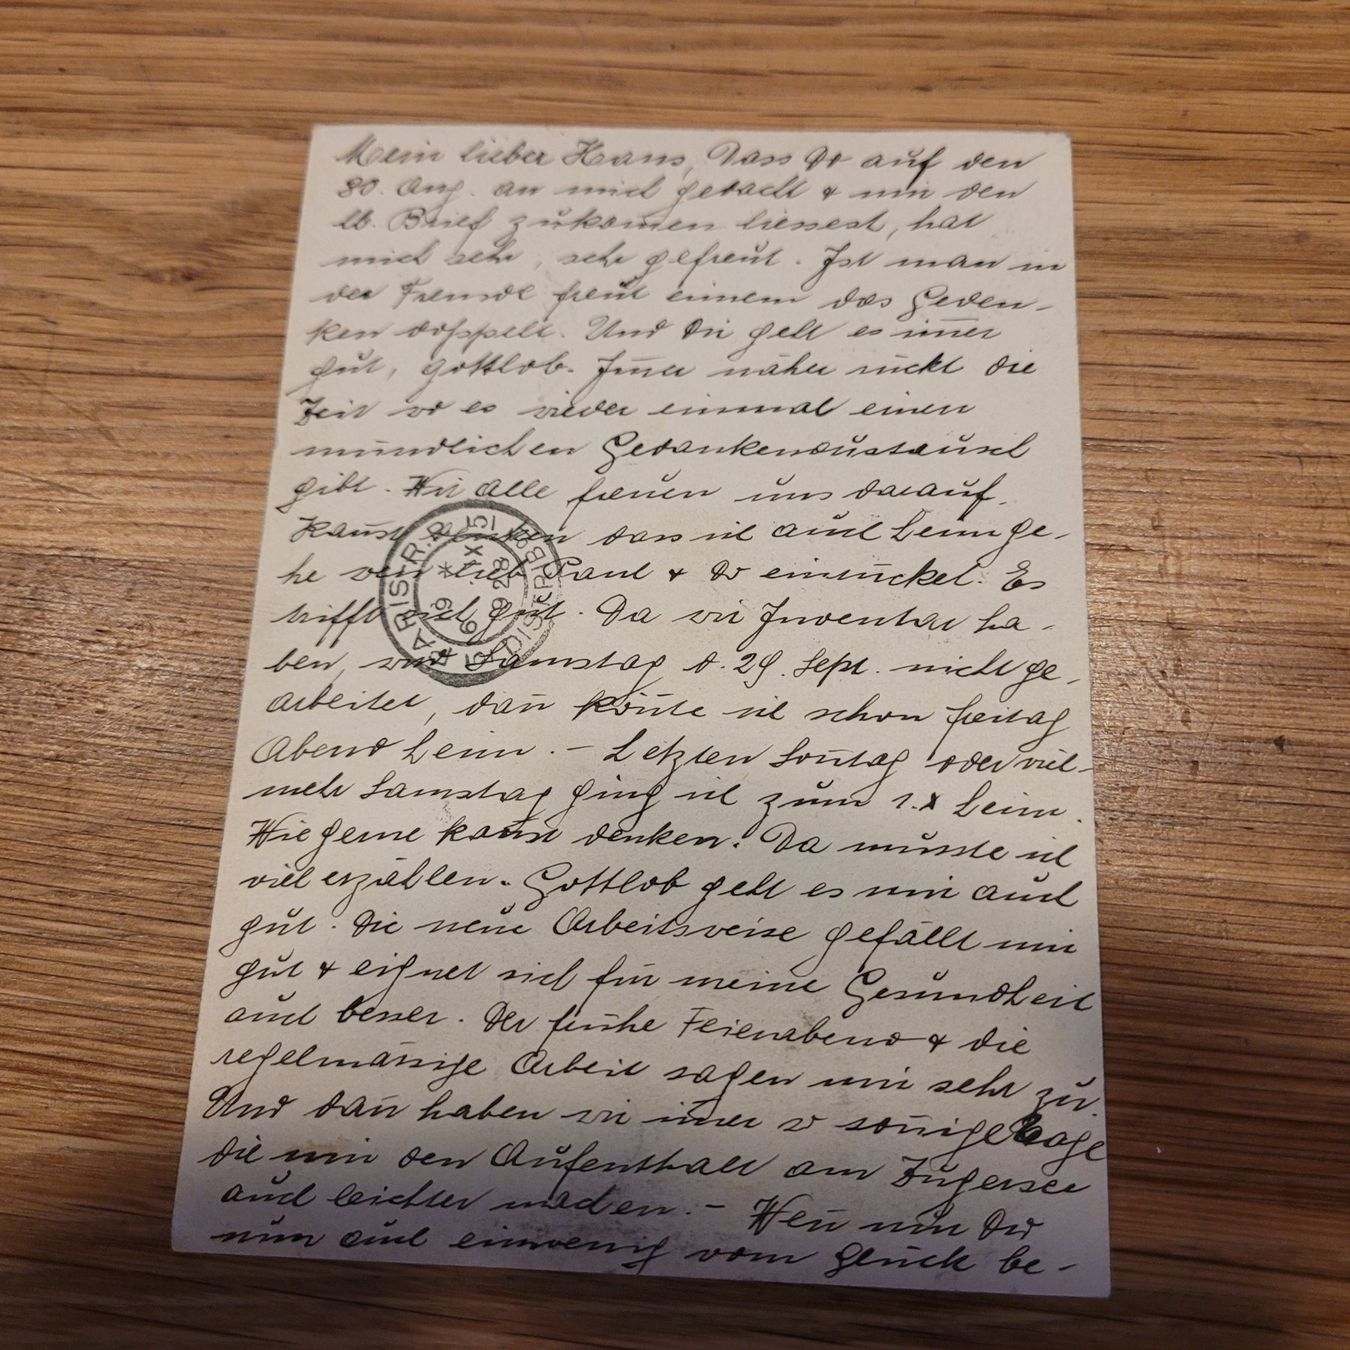 Mein lieber Hans, Dass Du auf den
30. Aug. an mich gedacht & mir den
lb. Brief zukom̅en liessest, hat
mich sehr, sehr gefreut. Ist man in
der Fremde freut einem das Geden-
ken doppelt. Und Dir geht es im̅er
gut, gottlob. Im̅er näher rückt die
Zeit wo es wieder einmal einen
mündlichen Gedankenaustausch
gibt. Wir alle freuen uns darauf.
Kannst denken dass ich auch heim ge-
he wen lieb Paul & Du einrücket. Es
trifft sich gut. Da wir Inventar ha-
ben, wird Samstag d. 29. Sept. nicht ge-
arbeitet, dan̅ kön̅te ich schon freitag
Abend heim. – Letzten Son̅tag oder viel-
mehr Samstag ging ich zum 1. x heim.
Wie gerne kannst denken. Da musste ich
viel erzählen. Gottlob geht es mir auch
gut. Die neue Arbeitsweise gefällt mir
gut & eignet sich für meine Gesundheit
auch besser. Der frühe Feierabend & die
regelmässige Arbeit sagen mir sehr zu.
Und dan̅ haben wir im̅er so son̅ige Tage
die mir den Aufenthalt am Zugersee
auch leichter machen. – Wen̅ nur Du
nun auch einwenig vom Glück be-
PARIS R.P.
15
XI
1928